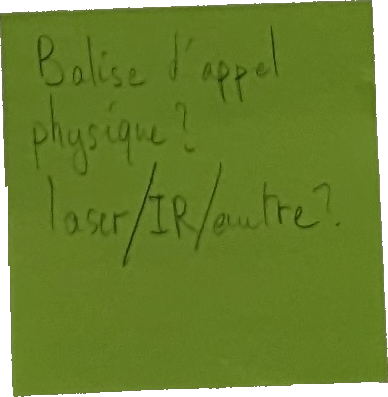 Balise d'appel
physique?
laser/IR/autre?